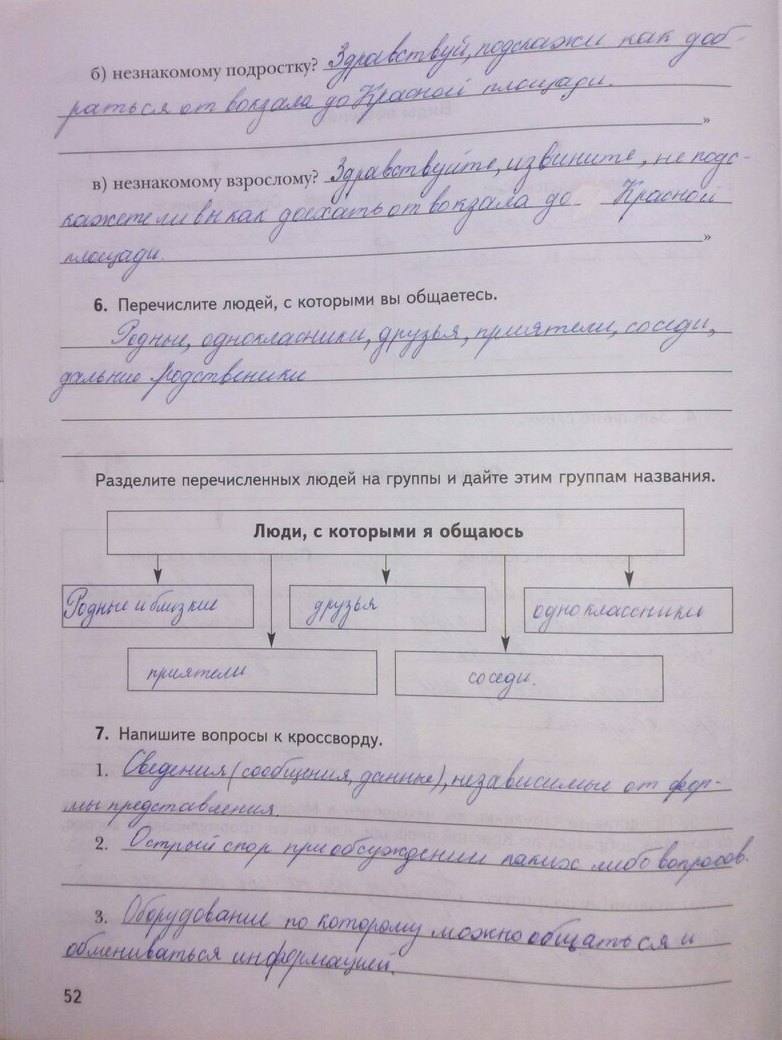 б) незнакомому подростку? Здравствуй, подскажи как доб-
раться от вокзала до Красной площади.
»
в) незнакомому взрослому? Здравствуйте, извините, не подс-
кажете ли вы как доехать от вокзала до Красной
площади. »
6. Перечислите людей, с которыми вы общаетесь.
Родные, однокласники, друзья, приятели, соседи,
дальние родственики
Разделите перечисленных людей на группы и дайте этим группам названия.
Люди, с которыми я общаюсь
Родные и близкие друзья одноклассники
приятели соседи.
7. Напишите вопросы к кроссворду.
1. Сведения (сообщения, данные), независимые от фор-
мы представления.
2. Острый спор при обсуждении каких либо вопросов.
3. Оборудование по которому можно общаться и
обмениваться информацией.
52